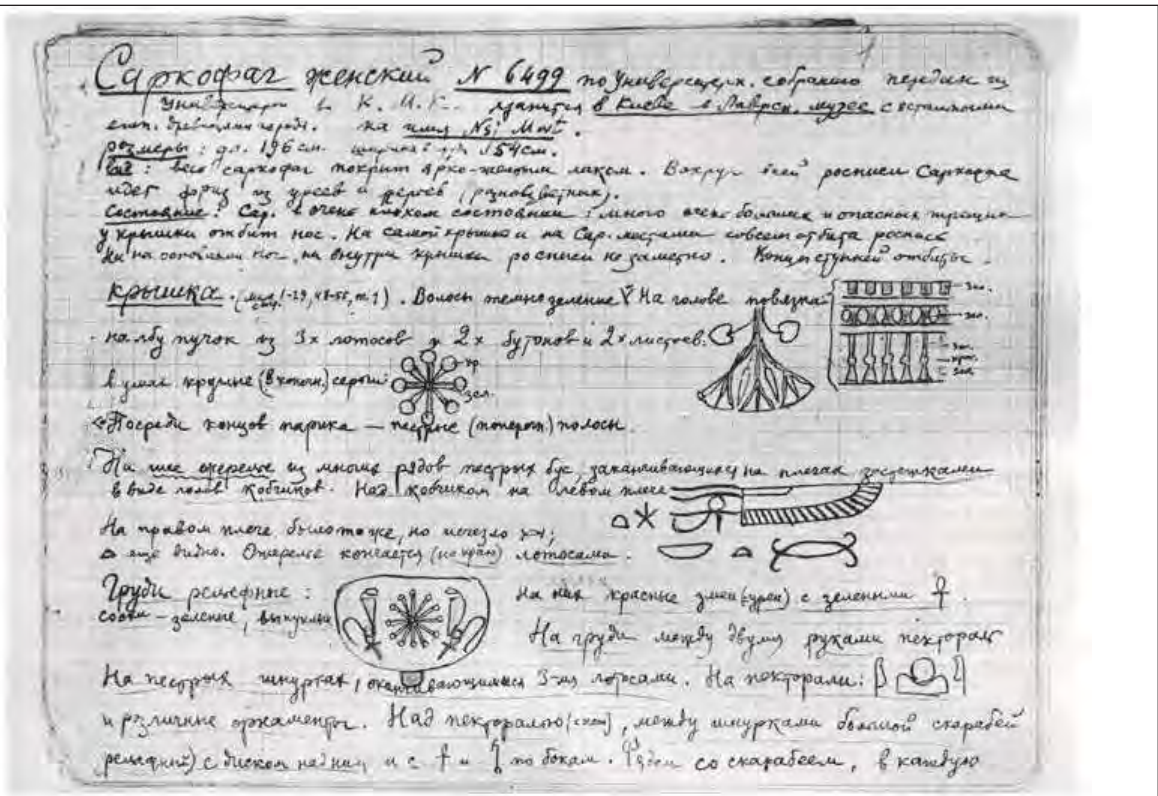 1
Саркофаг женский N 6499 по Университ. собранию передан из
Университета в К. И. К. хранится в Киеве в Лаврск. музее с остальными
егип. древностями города. на имя „Nsj Mwt".
размеры: дл. 196 см. ширина в 54 см.
весь саркофаг покрыт ярко-желтым лаком. Вокруг всей росписи Саркофага
идет фриз из уреев и перьев (разноцветных).
Состояние: Сар. в очень плохом состоянии: много очень больших и опасных трещин
у крышки отбит нос. На самой крышке и на Сар. местами совсем отбита роспись
Ни на основании ног, ни внутри крышки росписи не заметно. Концы ступней отбиты.
Крышка. 1-29, 48-55, т. 1). Волосы темнозеленые. На голове повязка:
зел.
зел.
зел.
крас.
зел.
на лбу пучок из 3х лотосов и 2х бутонов и 2х листьев:
в ушах круглые серьги:
кр.
зел.
Посреди концов парика — пестрые (попереч.) полосы.
На шее ожерелье из многих рядов пестрых бус, заканчивающихся на плечах застежками
в виде голов кобчиков. Над кобчиком на левом плече
На правом плече было тоже, но исчезло
еще видно. Ожерелье кончается (по краю) лотосами.
Груди рельефные:
соски — зеленые, выпуклые
На них красные змеи (уреи) с зелеными
На груди между двумя руками пектораль
На пестрых шнурках, оканчивающимися 3-мя лотосами. На пекторали:
и различные орнаменты. Над пекторалью, между шнурками большой скарабей
рельефный) с диском над ним и с и по бокам. Рядом со скарабеем, в каждую